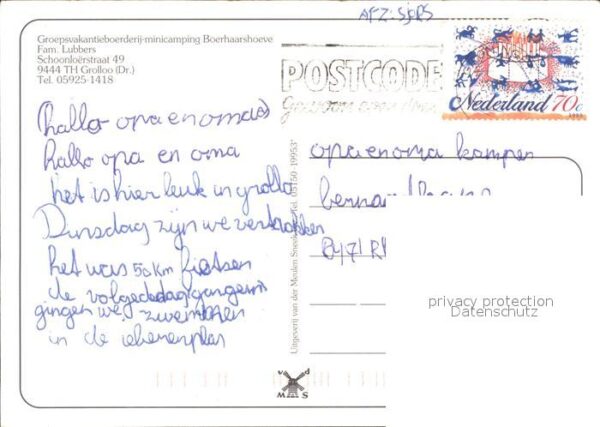 AFZ: SJORS
Groepsvakantieboerderij-minicamping Boerhaarshoeve
Fam. Lubbers
Schoonloërstraat 49
9444 TH Grolloo (Dr.)
Tel. 05925-1418
POSTCODE
Gewoon even doen
Nederland 70c
hallo opa en oma
hallo opa en oma
het is hier leuk in grollo
Dinsdag zijn we vertrokken
het was 50 km fietsen
de volgededag gingen
gingen we zwemmen
in de
opa en oma kampen
8471 R
Uitgeverij van der Meulen Sneek Tel. 05150-19953
v d
M S
privacy protection
Datenschutz